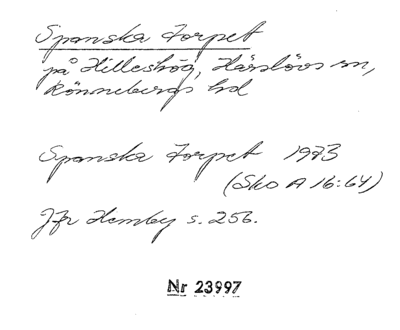 Spanska Torpet
på Hilleshög, Härslövs sn,
Rönnebergs hd
Spanska Torpet 1973
(Sko A 16:64)
Jfr Hemby s. 256.
Nr 23997